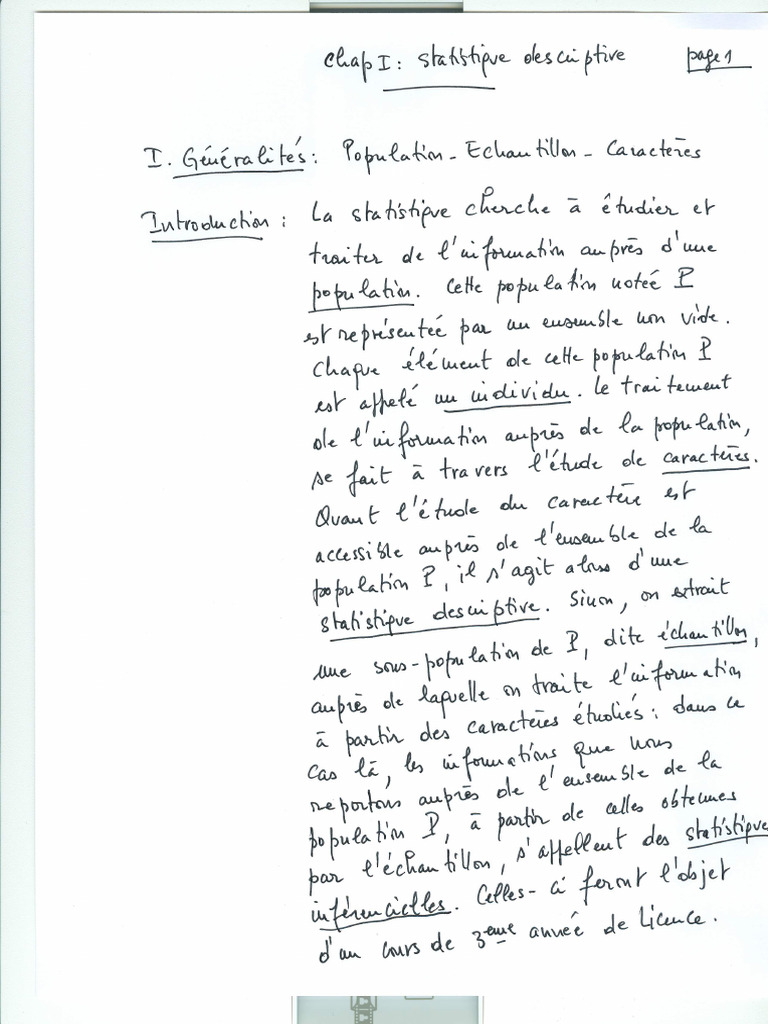 Chap I : Statistique descriptive page 1
I. Généralités : Population - Echantillon - Caractères
Introduction : La statistique cherche à étudier et
traiter de l'information auprès d'une
population. Cette population notée P
est représentée par un ensemble non vide.
Chaque élément de cette population P
est appelé un individu. Le traitement
de l'information auprès de la population,
se fait à travers l'étude de caractères.
Quant l'étude du caractère est
accessible auprès de l'ensemble de la
population P, il s'agit alors d'une
statistique descriptive. Sinon, on extrait
une sous-population de P, dite échantillon,
auprès de laquelle on traite l'information
à partir des caractères étudiés : dans ce
cas là, les informations que nous
reportons auprès de l'ensemble de la
population P, à partir de celles obtenues
par l'échantillon, s'appellent des statistiques
inférencielles. Celles-ci feront l'objet
d'un cours de 3ème année de Licence.